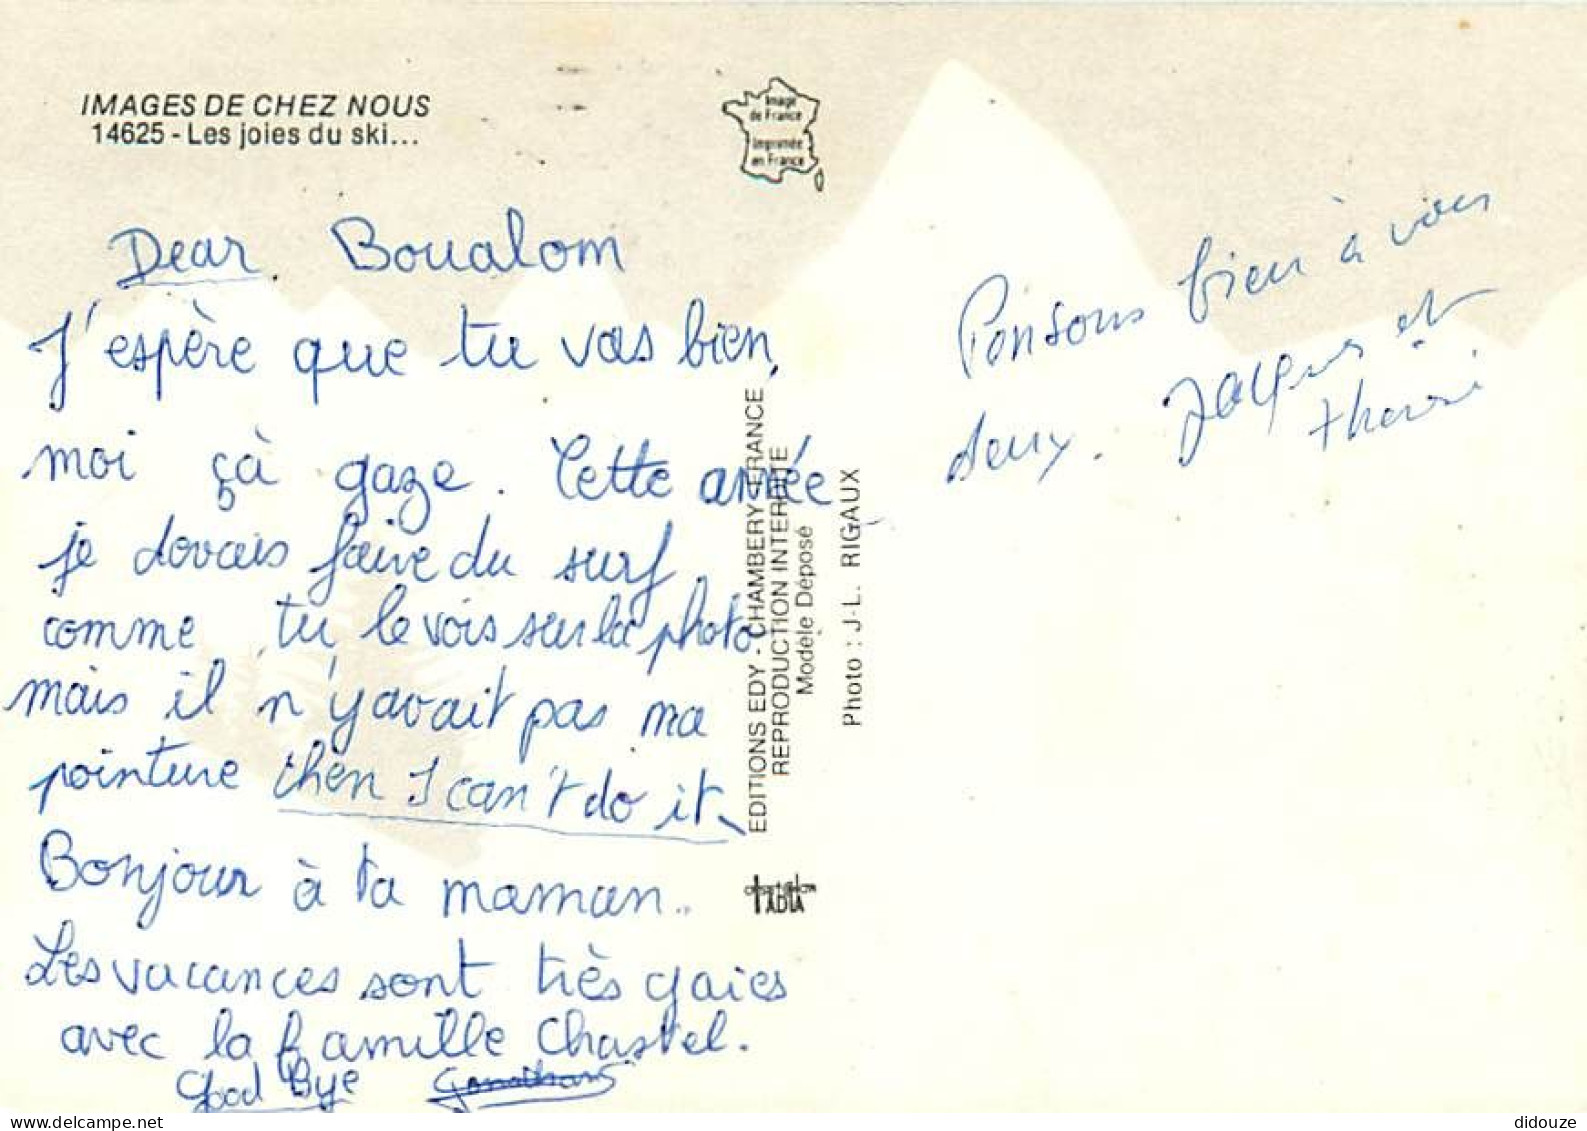 IMAGES DE CHEZ NOUS
14625 - Les joies du ski...
Image
de France
Imprimée
en France
Dear Boualom
J'espère que tu vas bien,
moi çà gaze. Cette année
je devais faire du surf
comme tu le vois sur la photo
mais il n'y avait pas ma
pointure then I can't do it
Bonjour à ta maman..
Les vacances sont très gaies
avec la famille Chastel.
Good Bye Jonathan
EDITIONS EDY - CHAMBERY - FRANCE
REPRODUCTION INTERDITE
Modèle Déposé
Photo : J-L. RIGAUX
Pensons bien à vous
deux. Jacques et
didouze